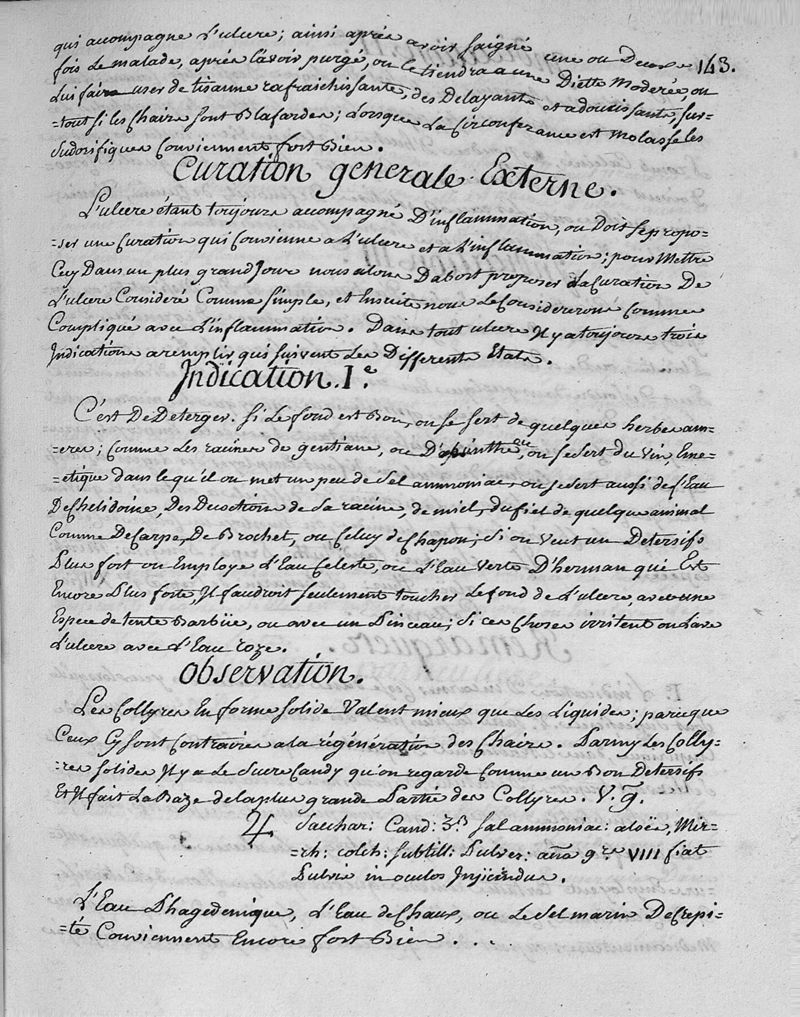 143.
qui accompagne L'ulcere; ainsi après avoir saigné une ou Deux
fois Le malade, après L'avoir purgé, on le tiendra a une Diette Moderée, on
Lui faire user de tisanne rafraichissante, des Delayants et adoucissants, sur-
=tout si les Chairs sont Blafardes; Lorsque La Circonferance est Molasse les
Sudorifiques Conviennent fort Bien.
Curation generale Externe.
L'ulcere étant toujours accompagné D'inflammation, on Doit se propo-
=ser une Curation qui Convienne a L'ulcere et a L'inflammation; pour Mettre
Cecy Dans un plus grand Jour nous alons Dabort proposer La Curation De
L'ulcere Consideré Comme simple, et Ensuite nous Le Considererons Comme
Compliqué avec L'inflammation. Dans tout ulcere Il y a toujours trois
Indications a remplir qui suivent Les Differents Etats.
Indication. I.e
C'est De Deterger. si Le fond est Bon, on se sert de quelques herbes am-
=eres; comme Les racines de gentiane, ou D'absinthe, ou on se sert du vin, Eme-
=etique dans le qu'il on met un peu de sel ammoniac, on se sert aussi de L'Eau
De Chelidoine, Des Decoctions de sa racine, de miel, du fiel de quelque animal
Comme De Carpe, De Brochet, ou Celuy de Chapon; si on veut un Detersifs
Plus fort on Employe L'Eau Celeste, ou L'Eau verte D'herman qui Est
Encore Plus forte, Il faudroit seulement toucher Le fond de L'ulcere, avec une
Espece de tente Barbüe, ou avec un Pinceau; si ces Choses irritent on Lave
L'ulcere avec L'Eau roze.
Observation.
Les Collyres En forme solide Valent mieux que Les Liquides; parceque
Ceux Cy sont Contraires a la régénération des Chairs. Parmy Les Colly-
=res solides Il y a Le sucre Candy qu'on regarde Comme un Bon Detersifs
Et Il fait La Baze de la plus grande Partie des Collyres. V. g.
♃ Sacchar: Cand: ʒβ sal ammoniac: aloës, Mir-
=rh: colch: subtill: Pulver: ana g.ra VIII fiat
Pulvis in oculos Injiciendus.
L'Eau Phagedenique, L'Eau de Chaux, ou Le sel marin Decrepi-
=té Conviennent Encore fort Bien . . .